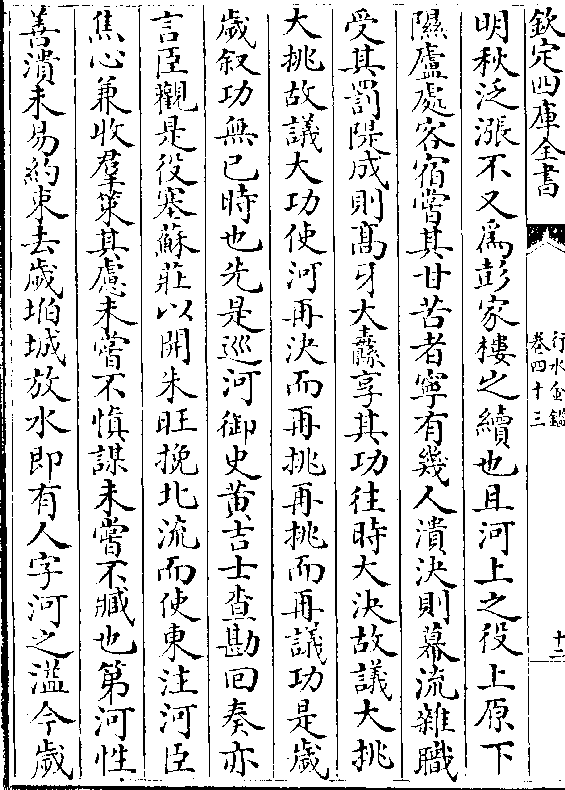 欽定四庫全書
行水金鑑
卷四十三
十二
明秋泛漲不又為彭家樓之續也且河上之役上原下
隰廬處客宿嘗其甘苦者寧有幾人潰決則幕流雜職
受其罰隄成則髙牙大纛享其功往時大決故議大挑
大挑故議大功使河再決而再挑再挑而再議功是歲
歲叙功無已時也先是巡河御史黄吉士查勘回奏亦
言臣觀是役塞蘇莊以開朱旺挽北流而使東注河臣
焦心兼收羣策其慮未嘗不慎謀未嘗不臧也第河性
善潰未易約束去歳坿城放水即有人字河之溢今歲